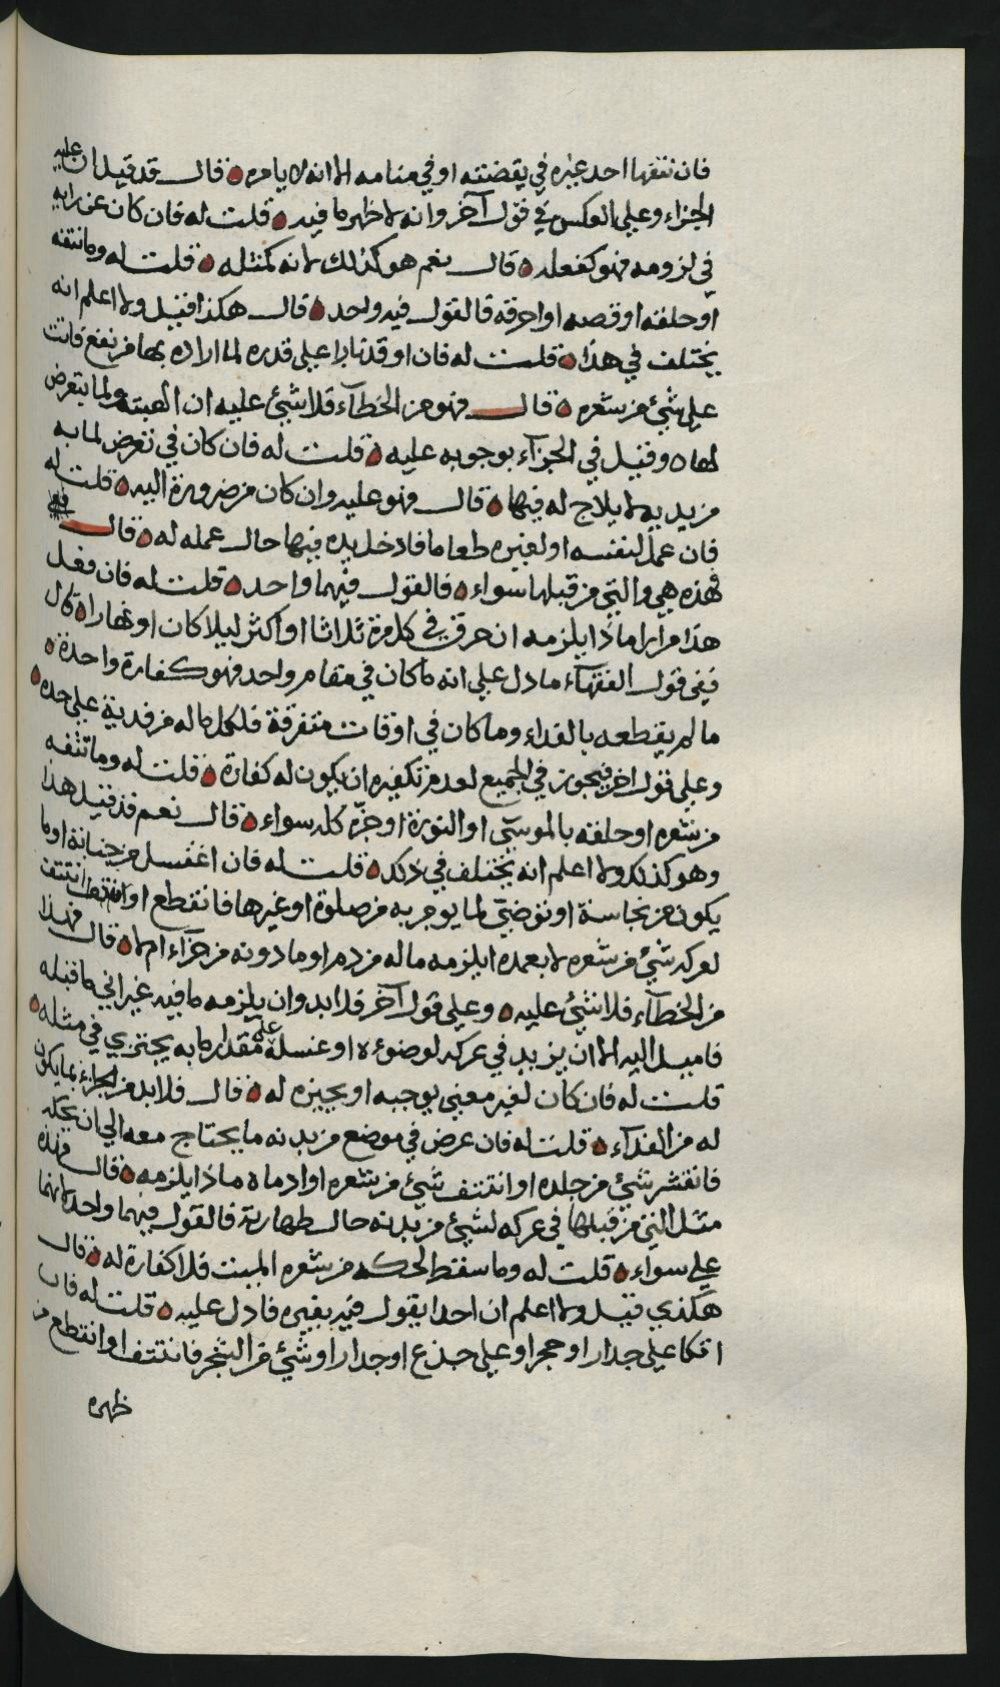 فان نتفها احد غيره في يقضته او في منامه الا انه لا يامره قال قد قيل ان عليه
الجزاء وعلى العكس في قول آخر وانه لاظهر ما فيه قلت له فان كان عن رايه
في لزومه فهو كفعله قال نعم هو كذلك لانه كمثله قلت له وما نتفه
او حلقه او قصه او احرقه فالقول فيه واحد قال هكذا قيل ولا اعلم انه
يختلف في هذا قلت له فان اوقد نارا على قدره لما اراده بها من نفع فاتت
على شئ من شعره قال فهو من الخطآء فلا شئ عليه ان الهبته ولما يتعرض
لها وقيل في الجزآء بوجوبه عليه قلت له فان كان في تعرض لما به
من يديه لا يلاج له فيها قال فهو عليه وان كان من ضرورة اليه قلت له
فان عمل لنفسه او لغيره طعاما فادخل يده فيها حال عمله له قال
فهذه هي والتي من قبلها سواء فالقول فيهما واحد قلت له فان فعل
هذا مرارا ماذا يلزمه ان حرق في كل مرة ثلاثا او اكثر ليلا كان او نهارا قال
ففي قول الفقهآء ما دل على انه ما كان في مقام واحد فهو كفارة واحدة
ما لم يقطعه بالفداء وما كان في اوقات متفرقة فلكل ماله من فدية على حده
وعلى قول اخر فيجوز في الجميع لعدم تكفيره ان يكون له كفارة قلت له وما نتفه
من شعره او حلقه بالموسى او النورة او جزّه كله سواء قال نعم قد قيل هذا
وهو كذلك ولا اعلم انه يختلف في ذلك قلت له فان اغتسل من جنابة او ما
يكون من نجاسة او توضئ لما يومر به من صلوة او غيرها فانقطع او انتتف
لعركه شئ من شعره لا بعمده ايلزمه ماله من دم او ما دونه من جزآء ام لا قال فهذا
من الخطآء فلا شئ عليه وعلى قول آخر فلا بد وان يلزمه ما فيه غير اني ما قبله
فاميل اليه الا ان يزيد في عركه لوضوءه او غسله على مقدار ما به يجتزي في مثله
قلت له فان كان لغير معنى يوجبه او يجيزه له قال فلا بد من الجزاء بما يكون
له من الفدآء قلت له فان عرض في موضع من بدنه ما يحتاج معه الى ان يحكه
فانقشر شئ من جلده او انتتف شئ من شعره او ادماه ماذا يلزمه قال فهذه
مثل التي من قبلها في عركه لشئ من بدنه حال طهارته فالقول فيهما واحد لانهما
على سواء قلت له وما سقط الحكه من شعره الميت فلا كفارة له قال
هكذى قيل ولا اعلم ان احدا يقول فيه بغيره فادل عليه قلت له فان
اتكا على جدار او حجر او على جذع او جدار او شئ من الشجر فانتتف او انقطع من
ظهره